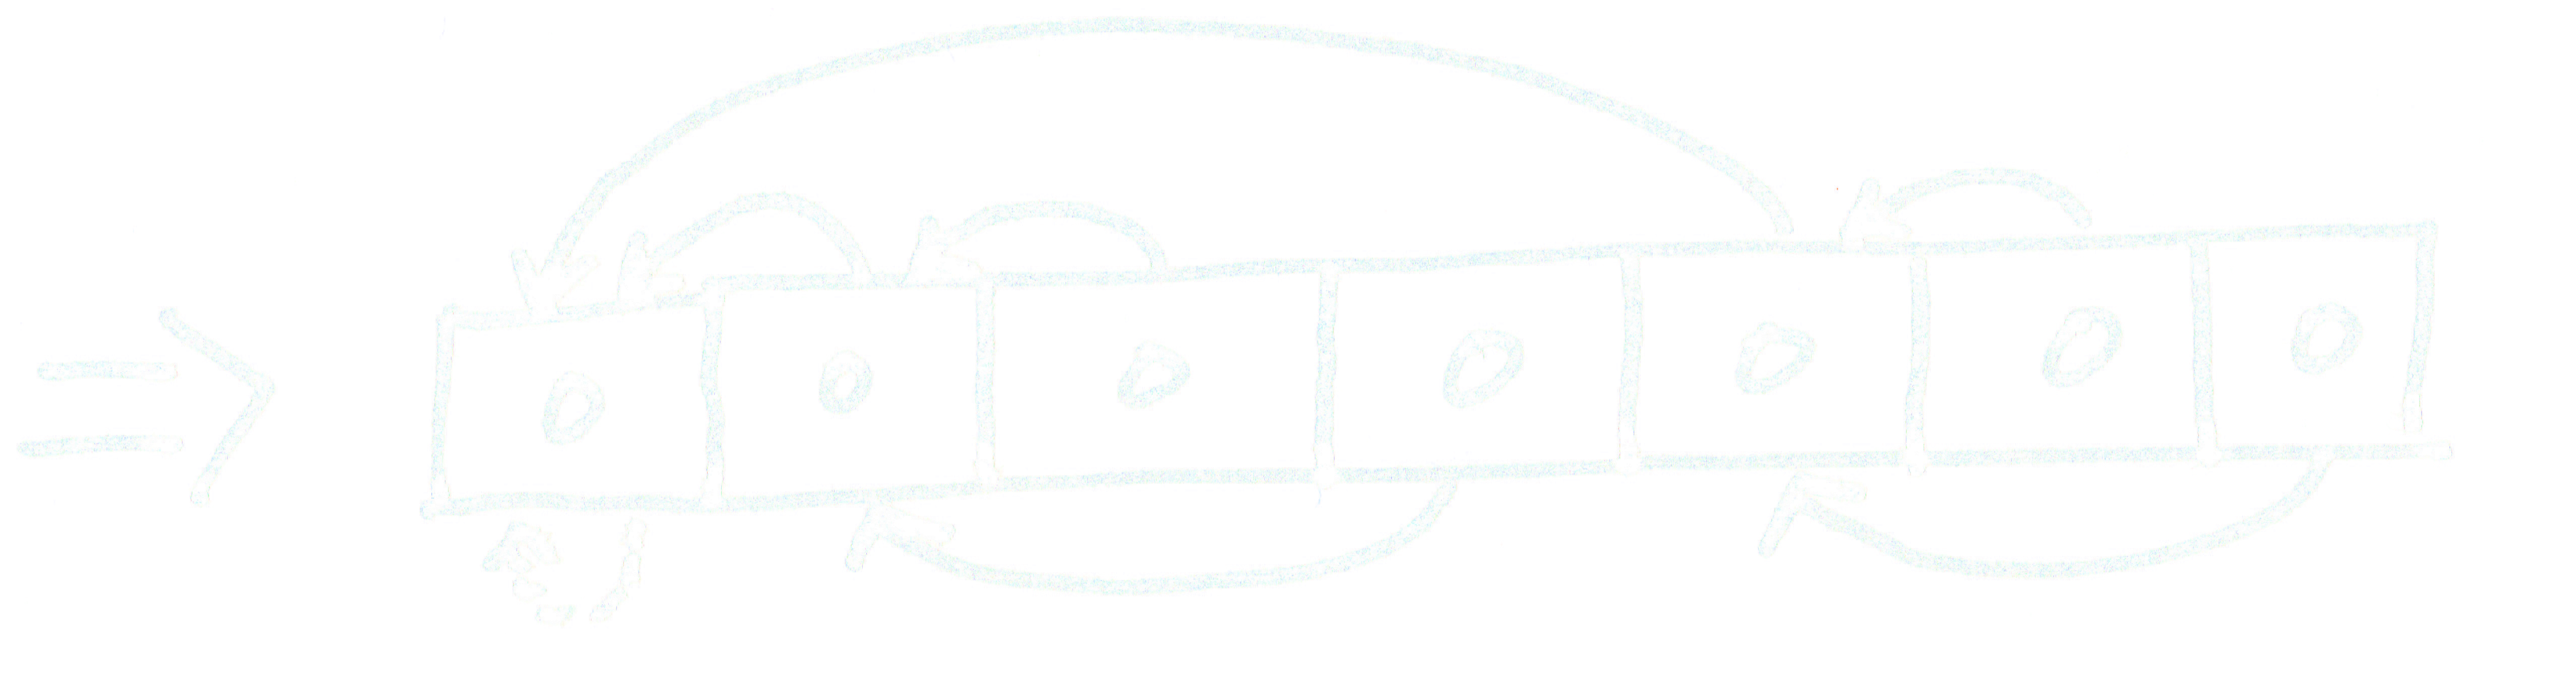 ⇒ 0 0 0 0 0 0 0